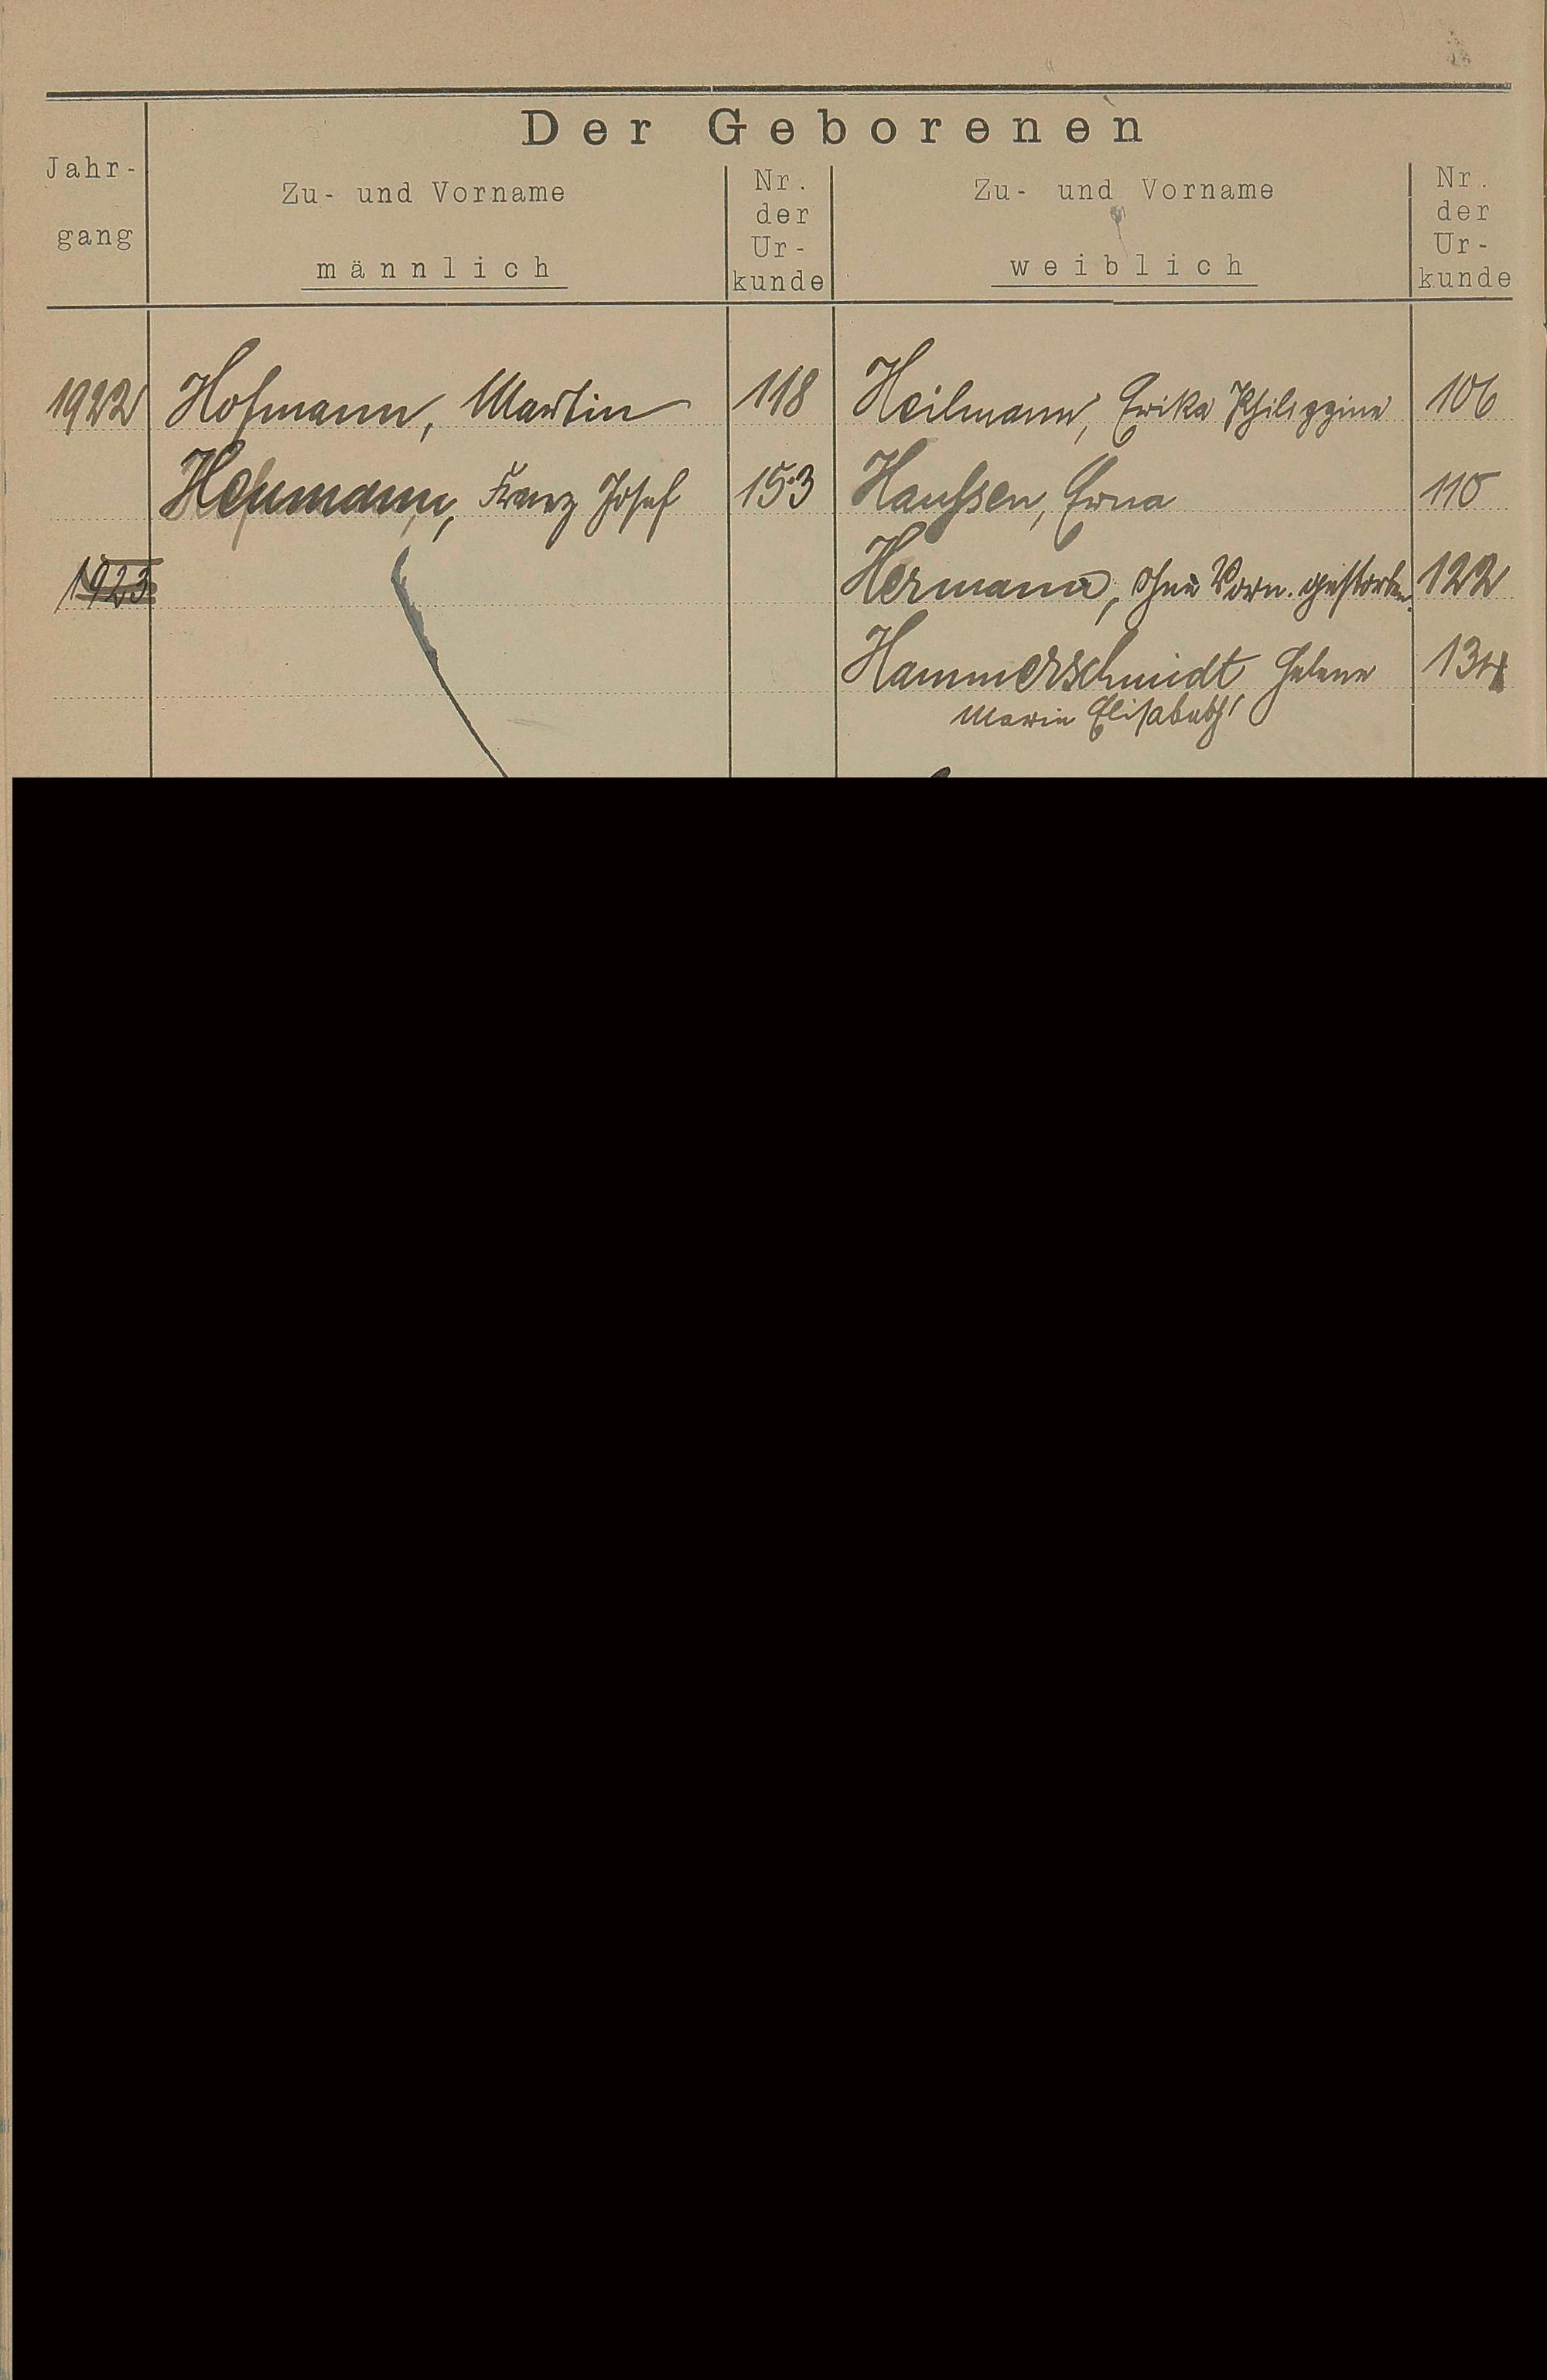 Der Geborenen
Jahr-
gang
Zu- und Vorname
männlich
Nr.
der
Ur-
kunde
Zu- und Vorname
weiblich
Nr.
der
Ur-
kunde
1922 Hofmann, Martin 118 Heilmann, Erika Philippine 106
Franz Josef 153 Erna 110
1923 Hermann, ohne Vorn. gestorben. 122
Hammerschmidt, Helene 134
Marie Elisabeth